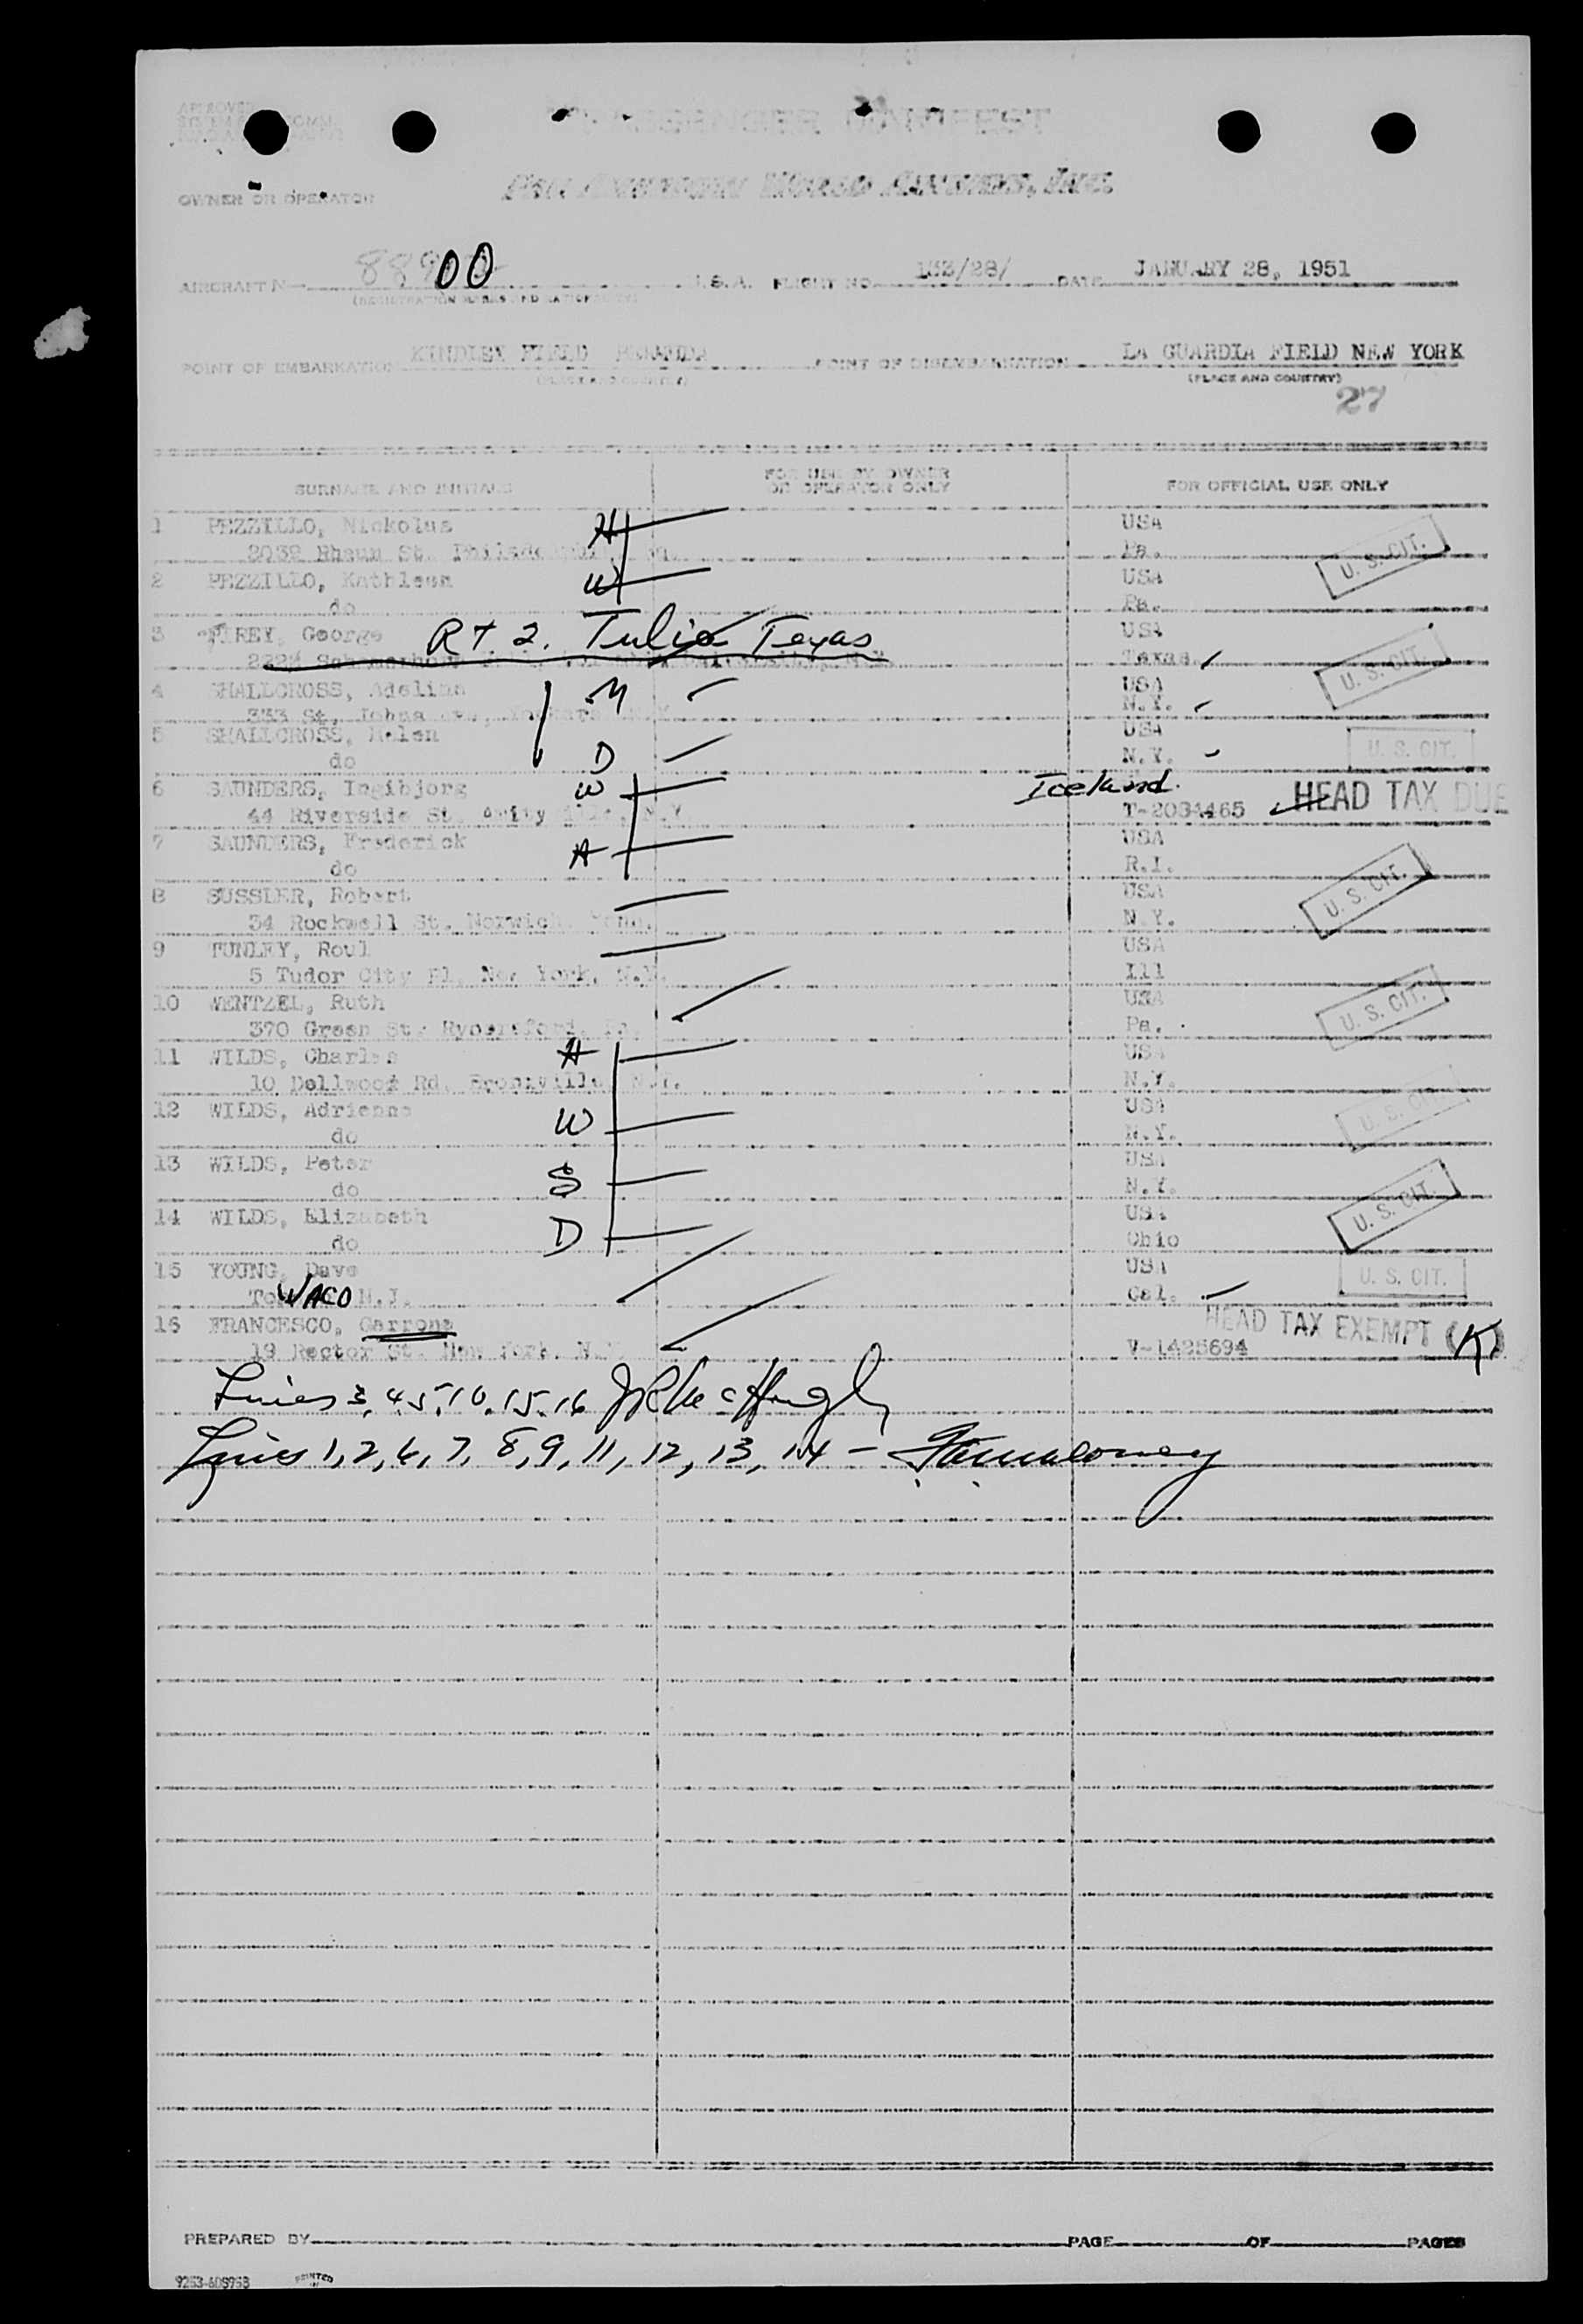 APPROVED
PASSENGER MANIFEST
OWNER OR OPERATOR PAN AMERICAN WORLD AIRWAYS, INC.
AIRCRAFT N 00 U.S.A. FLIGHT NO. 133/28/ DATE JANUARY 28, 1951
(REGISTRATION MARKS AND NATIONALITY)
POINT OF EMBARKATION KINDLEY FIELD BERMUDA POINT OF DISEMBARKATION LA GUARDIA FIELD NEW YORK
(PLACE AND COUNTRY) (PLACE AND COUNTRY)
27
SURNAME AND INITIALS FOR USE BY OWNER OR OPERATOR ONLY FOR OFFICIAL USE ONLY
1 PEZZILLO, Nickolus H USA
2032 Rhaun St. Philadelphia, Pa. Pa. U. S. CIT.
2 PEZZILLO, Kathleen W USA
do Pa.
3 George Rt 2. Tulia Texas USA
Texas U. S. CIT.
4 SHALLCROSS, Adeline M USA
333 St. Johns Ave, Yonkers N.Y. N.Y.
5 SHALLCROSS, Helen USA
do D N.Y. U. S. CIT.
6 SAUNDERS, Ingibjorg W Iceland.
44 Riverside St. Amityville, N.Y. T-2034465 HEAD TAX DUE
7 SAUNDERS, Frederick H USA
do R.I.
8 SUSSLER, Robert USA U. S. CIT.
34 Rockwell St. Norwich Conn. N.Y.
9 TUNLEY, Roul USA
5 Tudor City Pl. New York, N.Y. Ill
10 WENTZEL, Ruth USA U. S. CIT.
370 Green St. Pa. Pa.
11 WILDS, Charles H USA
10 Dellwood Rd. Bronxville N.Y. N.Y.
12 WILDS, Adrienne W USA U. S. CIT.
do N.Y.
13 WILDS, Peter S USA
do N.Y.
14 WILDS, Elizabeth D USA U. S. CIT.
do Ohio
15 YOUNG, Dave USA U. S. CIT.
WACO N.J. Cal.
16 FRANCESCO, Garrone HEAD TAX EXEMPT (K)
19 Rector St. New York, N.Y. V-1425694
Lines 3, 4, 5, 10, 15, 16
Lines 1, 2, 6, 7, 8, 9, 11, 12, 13, 14 -
PREPARED BY PAGE OF PAGES
PRINTED